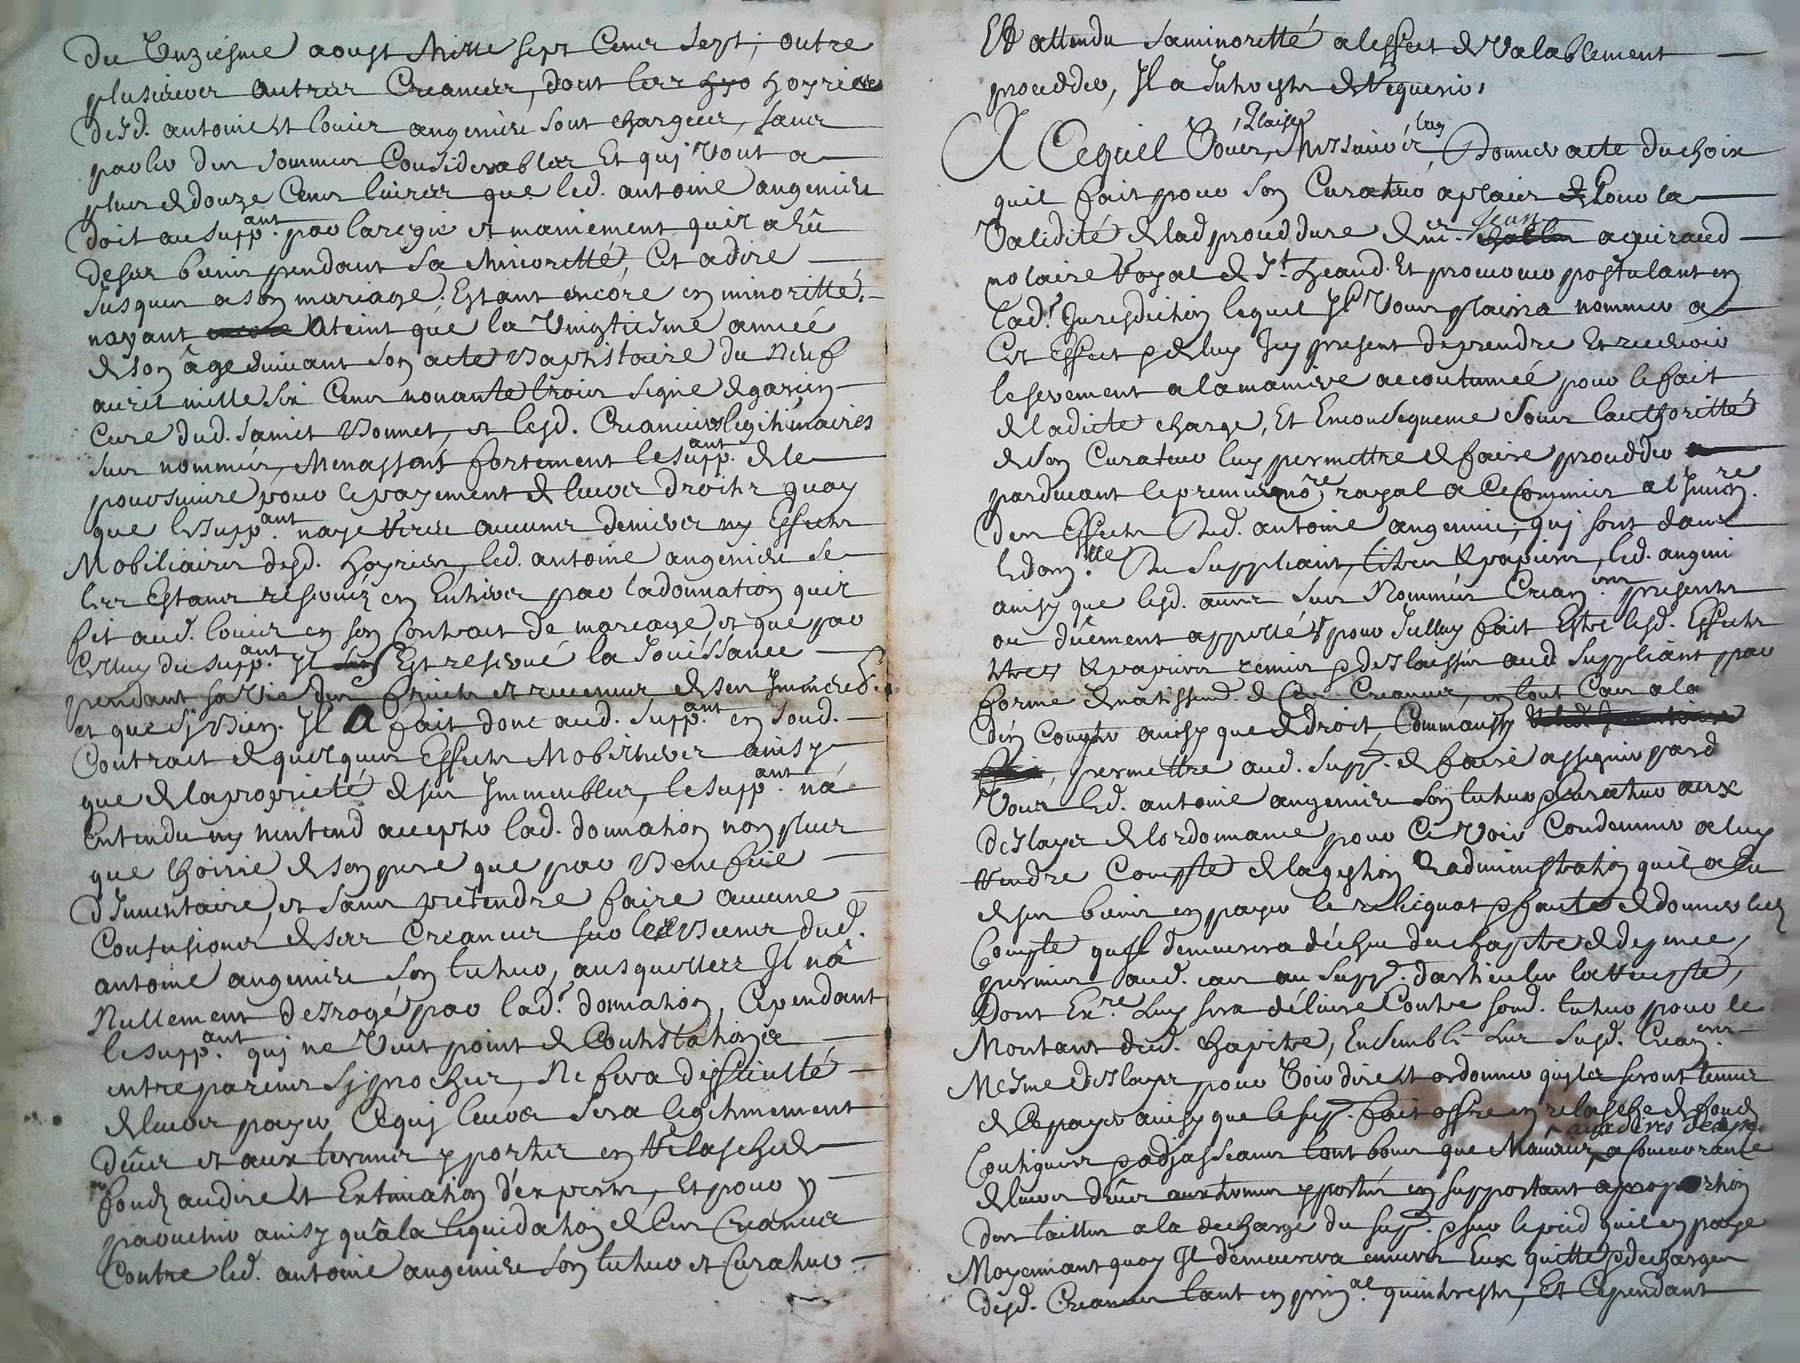 du Unziesme aoust Mille sept Cens sept, outre
plusieurs autres Creances, dont les hoyries
desd. antoine et louis angenieux sont chargées, sans
parler des sommes Considerables Et quj Vont a
plus de douze Cens livres que led. antoine angenieux
doit au supp.ant par la regie et maniement quil a hû
de ses biens pendant sa Minoritté, Cet a dire
Jusques a son mariage. Estant encore en minoritté,
nayant encore Ateint que la Vingtiesme année
de son âge suivant son acte Baptistaire du Neuf
auril mille six Cens nonante trois signé degarin
Curé dud. saint Bonnet, et lesd. Creanciers legitimaires
sus nommés, Menassant fortement le supp.ant de le
poursuivre pour le payement de leurs droits quoy
que le supp.ant naye Retiré aucuns deniers ny Effects
Mobiliaires desd. hoyries, led. antoine angenieux se
les Estant reservés en Entier par la donnation quil
fit aud. louis en son Contract de mariage, et que par
Celluy du supp.ant Jl Est reservé la Joüissance
pendant sa Vie des fruits et revenus de ses Jmmeub.
et que sy Bien Jl A fait don aud. supp.ant en soud.
Contract de quelques Effects Mobilliers ainsy
que de la proprieté de ses Jmmeubles, le supp.ant na
Entendu ny nentend accepter lad. donnation non plus
que lhoirie de son pere que par Benefice
d'Jnventaire, et sans pretendre faire aucune
Confusions de ses Creances sur les Biens dud.
antoine angenieux son tuteur, ausquelles Jl nâ
Nullement desrogé par lad.e donnation, Cependant
le supp.ant quj ne Veut point de Contestations
entre parens sj proches, Ne fera difficulté
de leurs payer Ce quj leurs sera legitimement
deües et aux termes y portés en Relaschede
fonds au dire et Extimation d'experts, Et pour y
parvenir ainsy qu'a la liquidation de les Creances
Contre led. antoine angenieux son tuteur et Curateur
Et attendu sa minoritté a leffect de Valablement
proceder, Jl a Jnterests de Requerir,
A Ce quil Vous Plaise, Messieurs, Donner acte du choix
quil fait pour son Curateur a plaids & Pour la
Validité de lad procedure de me Jean aguiraud
notaire Royal de St heand. Et procureur postulant en
lad.e Jurisdiction lequel Jl Vous plaira nommer a
Cet Effect & de luy Jcy present de prendre Et recevoir
le serement a la maniere accoutumée pour le fait
de ladicte charge, Et En consequence sous lauthoritté
de son Curateur luy permettre de faire proceder
pardevant le premier no.re royal a Ce Commis a lJnven.re
des Effects dud. antoine angenieux, quj sont dans
le dom.lle du suppliant, titres & papiers, led. angeni
ainsy que lesd. sus Nommés Crean.ers presents
ou dûement appellés pour Jcelluy fait Estre lesd. Effects
titres & papiers remis & deslaissés aud suppliant par
forme de natissem.t de Ces Creances, en tout Cas a la
d'en Compter ainsy que de droit, Comm'aussy
permettre aud. supp. de faire assigner pard
Vous led. antoine angenieux son tuteur & Curateur aux
deslays de lordonnance pour Ce Voir Condemner a luy
Rendre Compte de la gestion & administration quil a Eu
de ses biens en payer le relliquat & faute de donner led.
Compte quJl demeurera déchu du chapitre de depence,
permis aud. cas au supp. darticuler la Recepte,
Dont Ex.re Luy sera délivré Contre soud. tuteur pour le
Montant dud. chapitre, Ensemble Les susd. Crean.ers
Mesme deslays pour Voir dire et ordonner quJls seront tenus
de Ce payer ainsy que le sup. fait offre en relasche de fonds
Contigues & adjasseants tant bons que Mauvais, a Concurrance
de leurs deües aux termes y portés en supportant a proportion
des tailles a la decharge du sup. & sur le pied quil en paye
Moyennant quoy Jl demeurera envers Eux quitte & decharges
desd. Creances tant en prin.al quinterests, Et Cependant